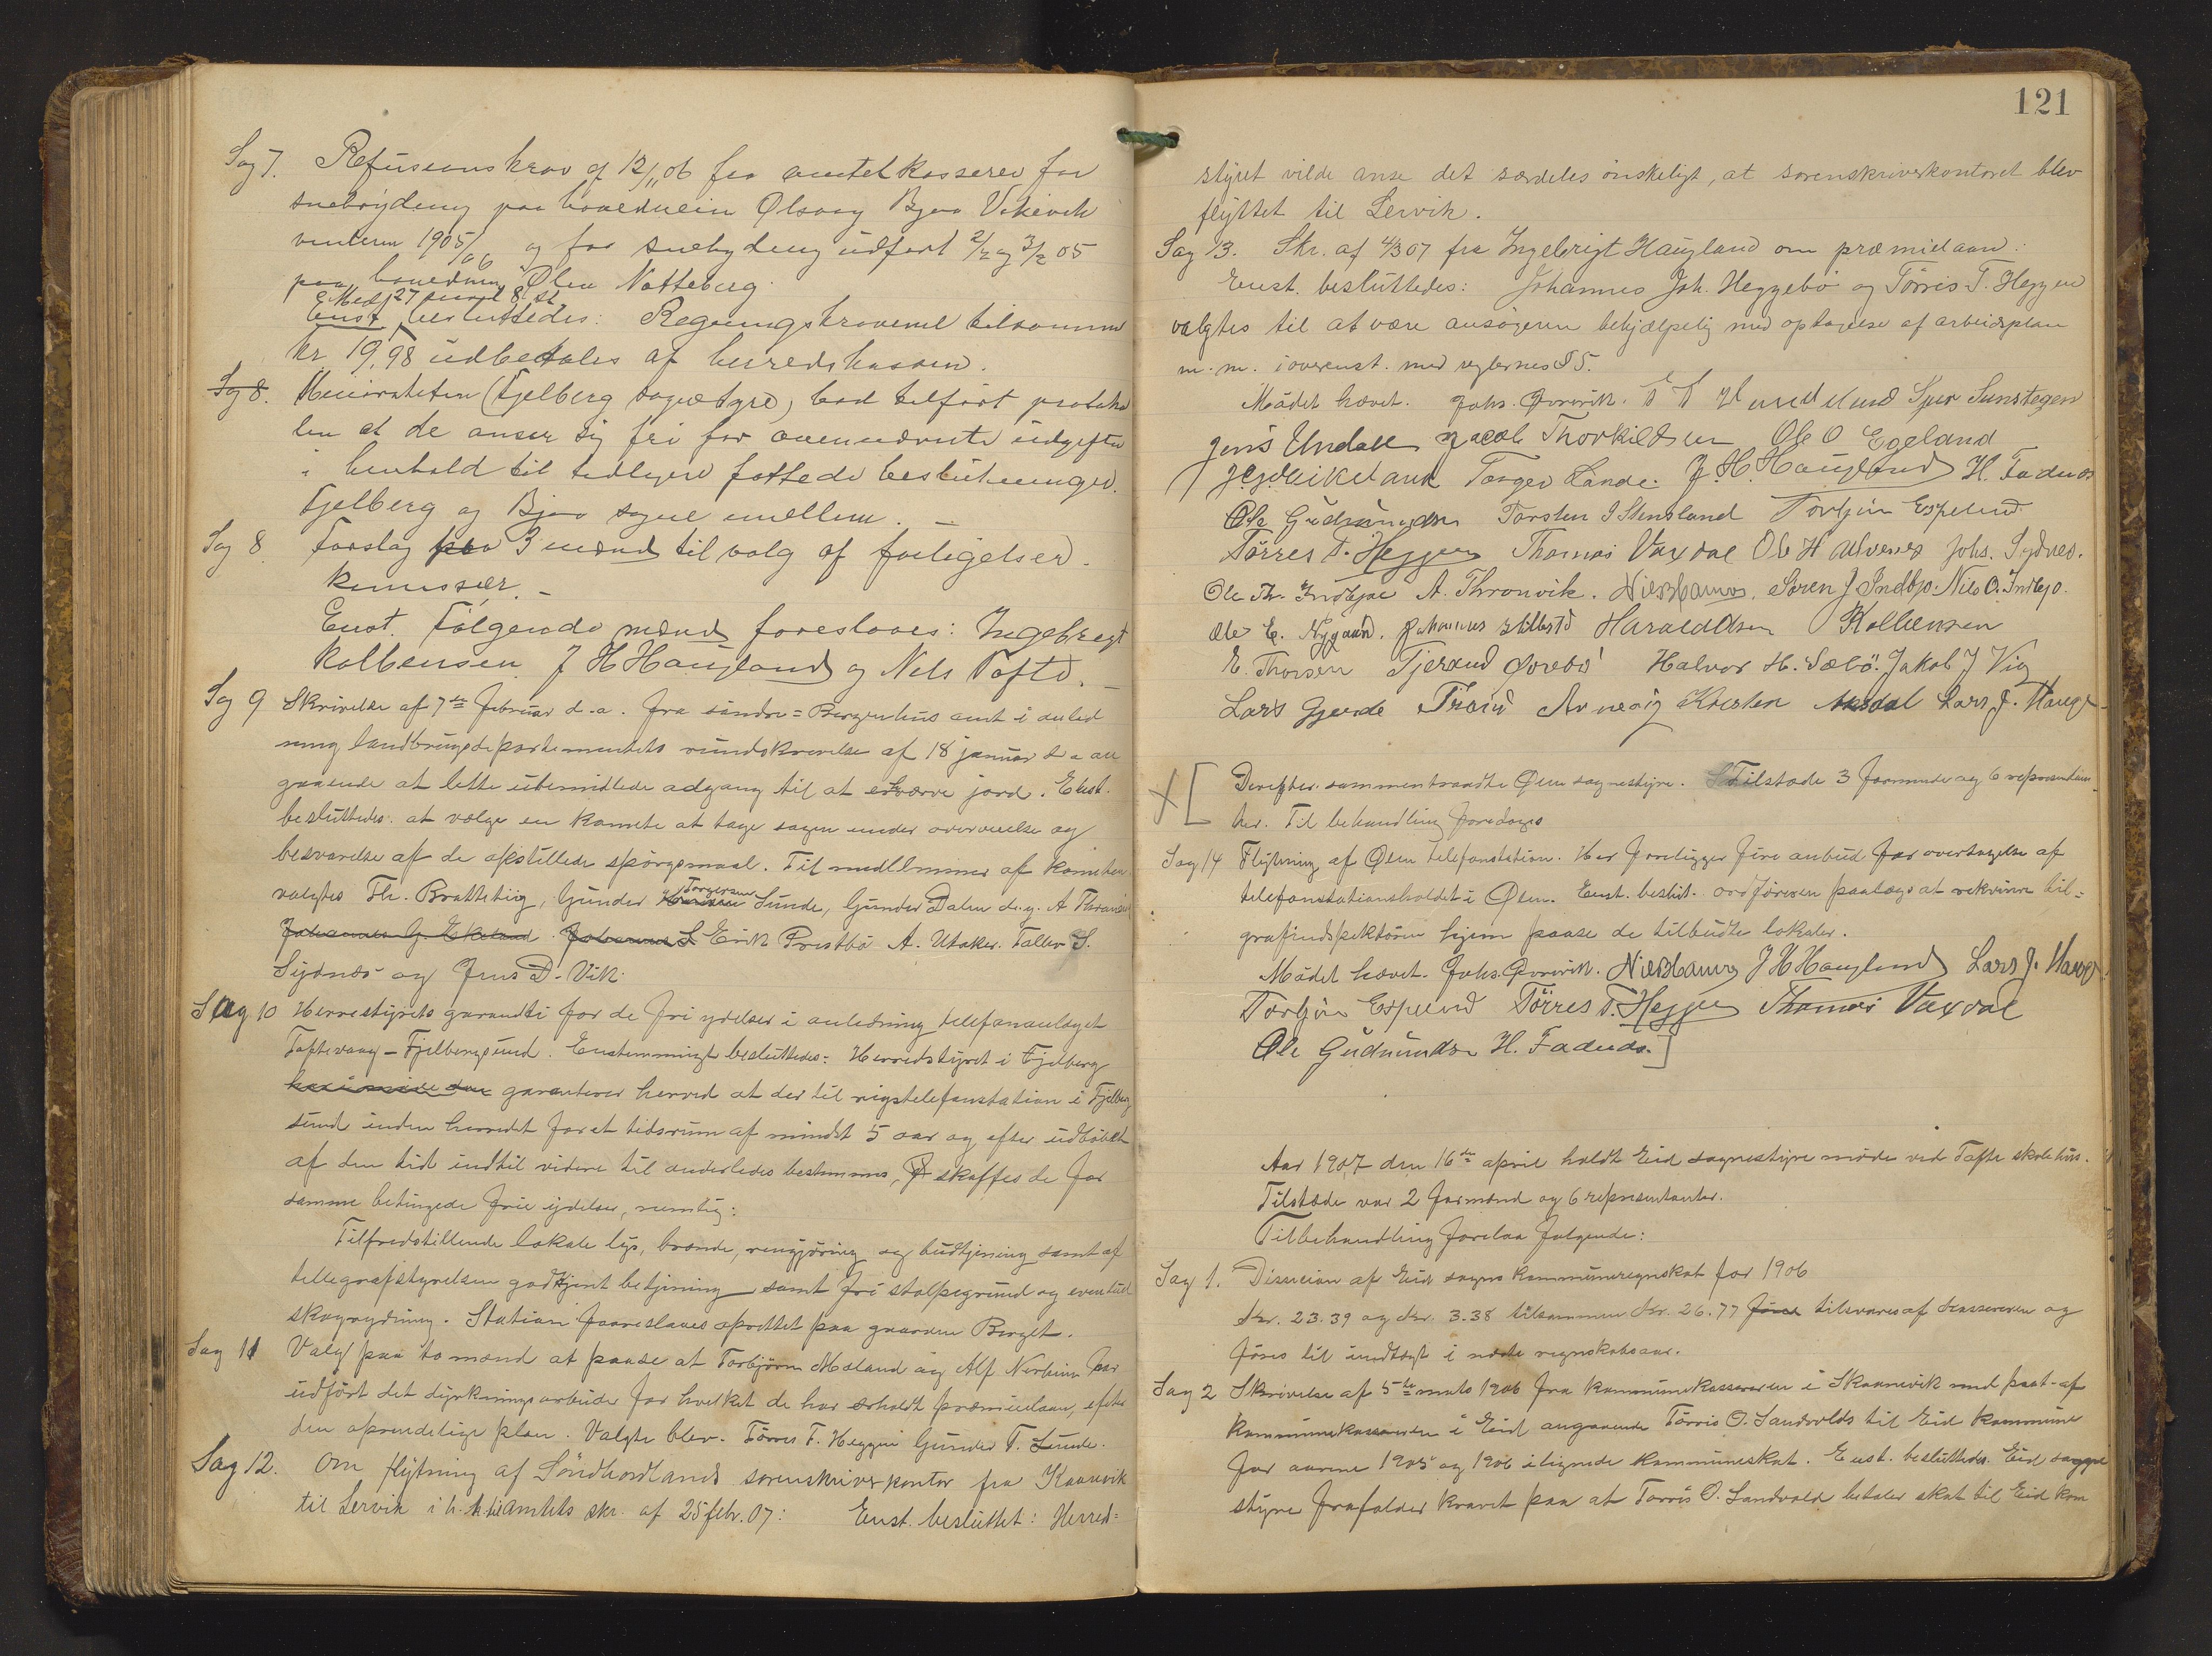 Sag 7. Refusionskrav af 12/11 06 fra amtets kasserer for
snebrydning paa hovedveien Ølsvaag Bjoa Vikevik
vinteren 1905/06 og for snebrydning udført 2/2 og 3/2 05
paa hovedveien Ølen Notteberg.
Med 27 mod 8 st.
Enst besluttedes: Regningskravene tilsammen
kr. 19,98 udbetales af herredskassen.
Sag 8. Minoriteten (Fjelberg sognestyre) bad tilført protokol
len at de anser sig fri for ovennævnte udgifter
i henhold til tidligere fattede beslutninger
Fjelberg og Bjoa sogne imellem.
Sag 8 Forslag paa 3 mænd til valg af forligelses-
kommissær.
Enst. Følgende mænd foreslaaes: Ingebregt
Kolbensen J H Haugland og Nels Tofte.
Sag 9 Skrivelse af 7de februar d.a. fra søndre=Bergenhus amt i anled
ning landbrugsdepartementets rundskrivelse af 18 januar d a an
gaaende at lette ubemidlede adgang til at erhverve jord. Enst.
besluttedes at vælge en komite at tage sagen under overveielse og
besvarelse af de opstillede spørgsmaal. Til medlemmer af komiteen
valgtes Th. Bratteteig, Gunder Torgersen Sunde, Gunder Dalen d.y. A Thronvik
Johannes G. Ekeland Johannes S Erik Prestbø A. Utaker. Tallev S.
Sydnes og Jens D. Vik.
Sag 10 Herredstyrets garandti for de fri ydelser i anledning telefonanlæget
Toftevaag - Fjelbergsund. Enstemmigt besluttedes: Herredstyret i Fjelberg
garanterer herved at der til rigstelefonstation i Fjelberg
sund inden herredet for et tidsrum af mindst 5 aar og efter udløbet
af den tid indtil videre til anderledes bestemmes, skaffes de for
samme betingede frie ydelser, nemlig:
Tilfredstillende lokale lys, brænde, rengjøring og budtjening samt af
tellegrafstyrelsen godkjent betjening samt fri stolpegrund og eventuel
skogrydning. Station foreslaaes oprettet paa gaarden Berget.
Sag 11 Valg paa to mænd at paase at Torbjørn Mæland og Alf Nerheim har
udført det dyrkningsarbeide for hvilket de har erholdt præmielaan, efter
den oprindelige plan. Valgte blev. Tørres T. Heggen Gunder T. Sunde.
Sag 12. Om flytning af Søndhordlands sorenskriverkontor fra Kaarevik
til Lervik i h. h. til amtets skr. af 25 febr. 07: Enst. besluttet: Herred=
121
styret vilde anse det særdeles ønskeligt, at sorenskriverkontoret blev
flyttet til Lervik.
Sag 13. Skr. af 4/3 07 fra Ingebrigt Haugland om præmielaan:
Enst. besluttedes: Johannes Joh. Heggebø og Tørris T. Heggen
valgtes til at være ansøgeren behjælpelig med optagelse af arbeidsplan
m. m. i overenst. med reglernes § 5.
Mødet hævet. Johs. Øvrevik. Sjur Sunstegen
Jens Undall Jacob Thorkildsen Ole O Egeland
Torger Lande. J. H. Haugland H. Fadnes
Ole Gudmundsen Torsten J Stensland Torbjørn Espeland
Tørres T. Heggen Thomas Vaxdal Ole H Alvenes Johs. Sydnes.
Ole Th. Indbjoe A. Thronvik. Nils Hamre. Søren J Indbjo. Nils O. Indbjo.
Ole E. Nygaard. Johannes Haraldsen Kolbensen
E. Thorsen Tjerand Øvrebø Halvor H. Sæbø. Jakob J Vig
Lars Gjerde Trond Arnevig Karsten Lars J. Hauge
Derefter sammentraadte Ølen sognestyre. Tilstede 3 formænd og 6 repræsentan
ter. Til behandling foretages
Sag 14 Flytning af Ølen telefonstation. Her foreligger fire anbud for overtagelse af
telefonstationsholdet i Ølen. Enst. beslut. ordføreren paalægs at rekvirere til=
grafinspektøren hjem paase de tilbudte lokaler.
Mødet hævet. Johs. Øvrevik. Nils Hamre J H Haugland Lars J. Hauge
Torbjørn Espeland Tørres T. Heggen Thomas Vaxdal
Ole Gudmundsen H. Fadnes.
Aar 1907 den 16de april holdt Eid sognestyre møde ved Tofte skolehus.
Tilstede var 2 formænd og 6 repræsentanter.
Til behandling forelaa følgende:
Sag 1. Dissision af Eid sogns kommuneregnskab for 1906
kr. 23.39 og kr. 3.38 tilsammen kr. 26.77 tilsvares af kassereren og
føres til indtægt i næste regnskabsaar.
Sag 2 Skrivelse af 5te mars 1906 fra kommunekassereren i Skaanevik med paat. af
kommunekassereren i Eid angaaende Tørris O. Sandvolds til Eid kommune
for aarene 1905 og 1906 ilignede kommuneskat. Enst. besluttedes. Eid sogne
styre frafalder kravet paa at Tørris O. Sandvold betaler skat til Eid kom